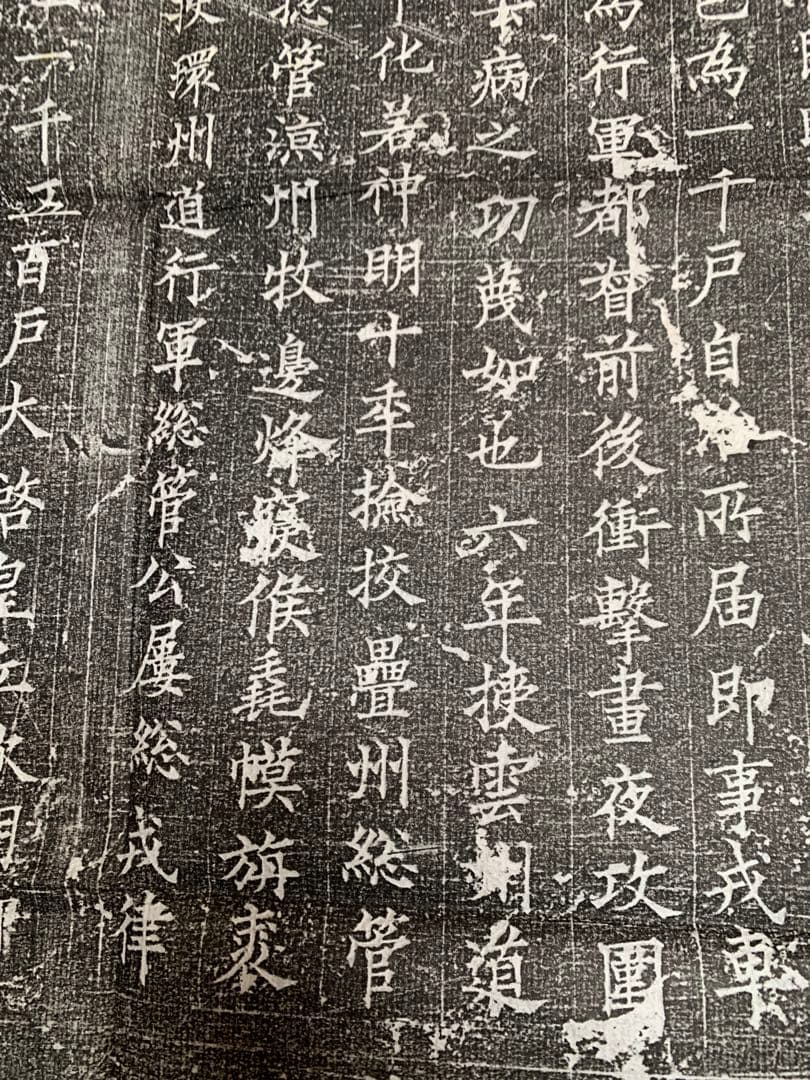 為一千戶自所届即事戎車
為行軍都督前後衝擊晝夜攻圍
去病之功蔑如也六年雲州道
化若神明十年撿挍疊州総管
総管涼州牧邊烽寢候毳幙旃裘
環州道行軍総管公屢総戎律
一千五百戶大啓皇